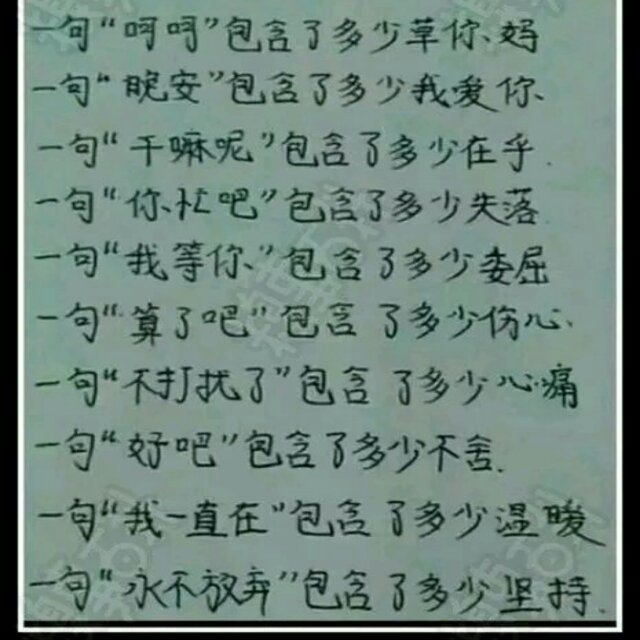 一句“呵呵”包含了多少草你、妈
一句“晚安”包含了多少我爱你、
一句“干嘛呢”包含了多少在乎.
一句“你忙吧”包含了多少失落
一句“我等你、”包含了多少委屈
一句“算了吧”包含了多少伤心、
一句“不打扰了”包含了多少心痛
一句“好吧”包含了多少不舍.
一句“我一直在”包含了多少温暖
一句“永不放弃”包含了多少坚持.